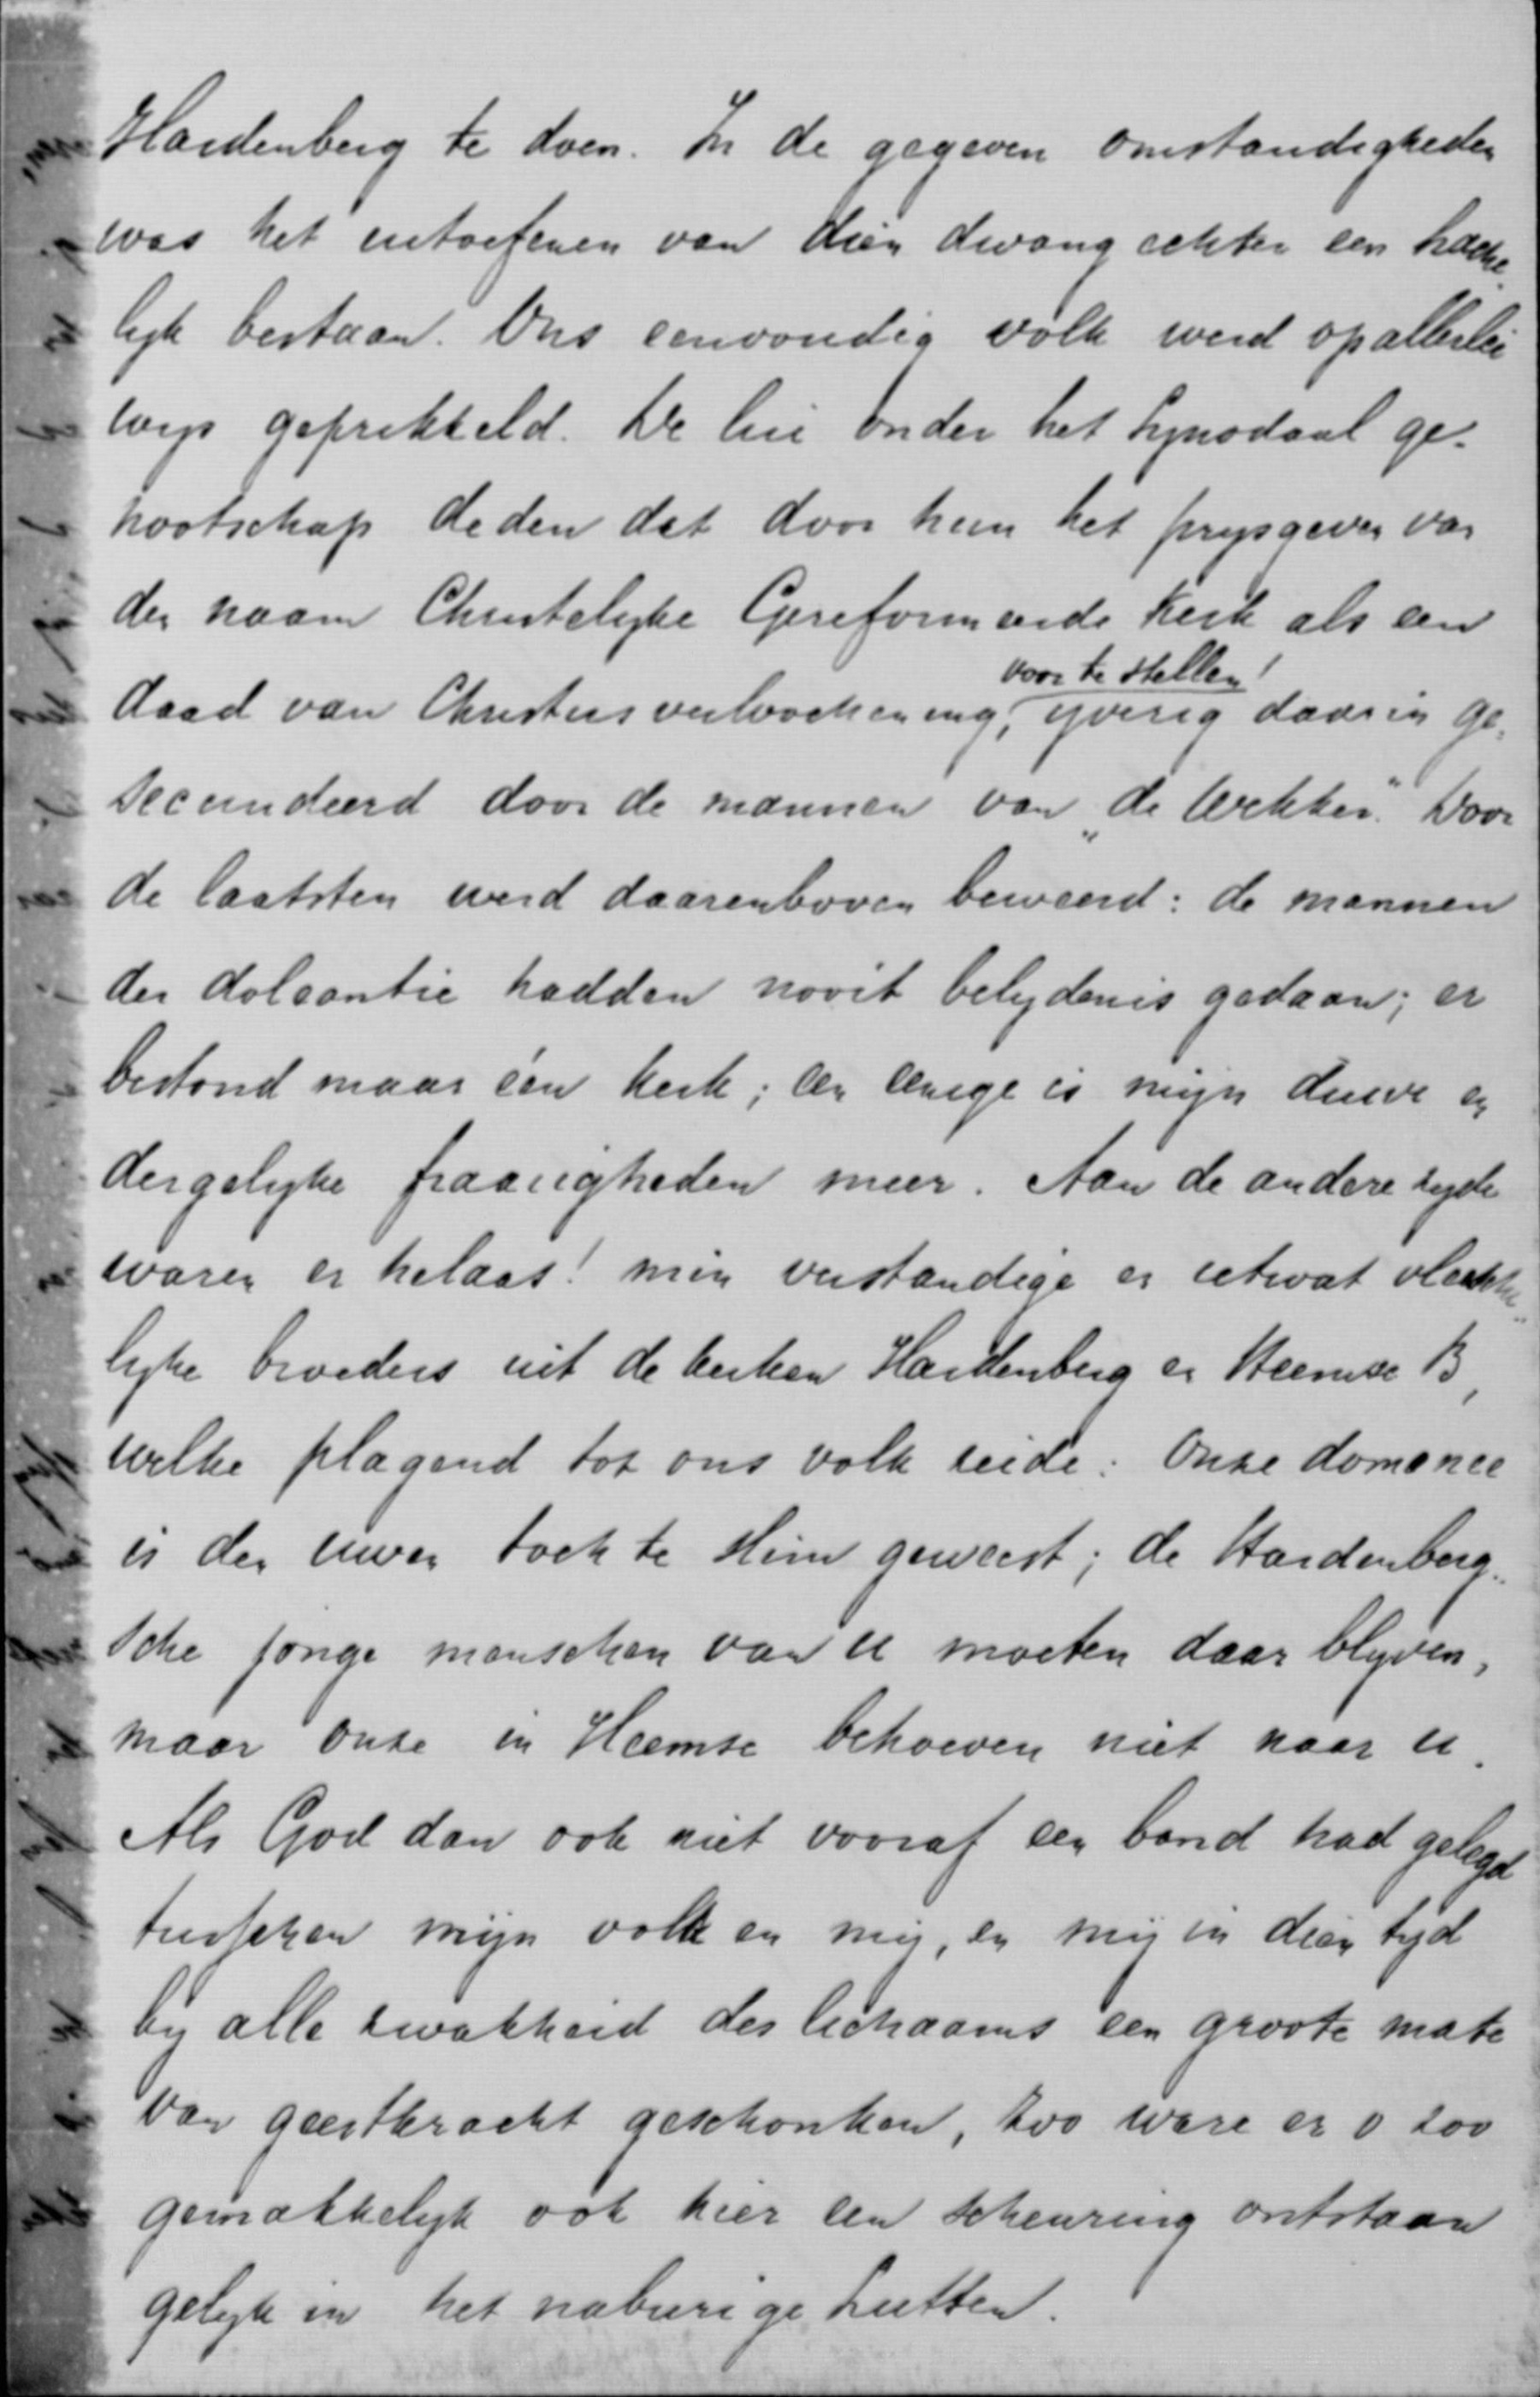 Hardenberg te doen. In de gegeven omstandigheden
was het uitoefenen van dien dwang echter een hache-
lyk bestaan. Ons eenvoudig volk werd op allerlei
wys geprikkeld. De lui onder het Synodaal ge-
nootschap deden dat door hun het prysgeven van
den naam Christelyke Gereformeerde Kerk als een
voor te stellen!
daad van Christusverloochening, yverig daarin ge-
secundeerd door de mannen van „de Wekker." Door
de laatsten werd daarenboven beweerd: de mannen
der doleantie hadden nooit belydenis gedaan; er
bestond maar één kerk; een eenige is mijn duive en
dergelyke fraaiigheden meer. Aan de andere zyde
waren er helaas! min verstandige en ietwat vleesche-
lyke broeders uit de kerken Hardenberg en Heemse B,
welke plagend tot ons volk zeide: Onze domenee
is den uwen toch te slim geweest; de Hardenberg-
sche jonge menschen van U moeten daar blyven,
maar onze in Heemse behoeven niet naar U.
Als God dan ook niet vooraf een band had gelegd
tusschen mijn volk en mij, en mij in dien tyd
by alle zwakheid des lichaams een groote mate
van geestkracht geschonken, zoo ware er o zoo
gemakkelyk ook hier een scheuring ontstaan
gelyk in het naburige Lutten.